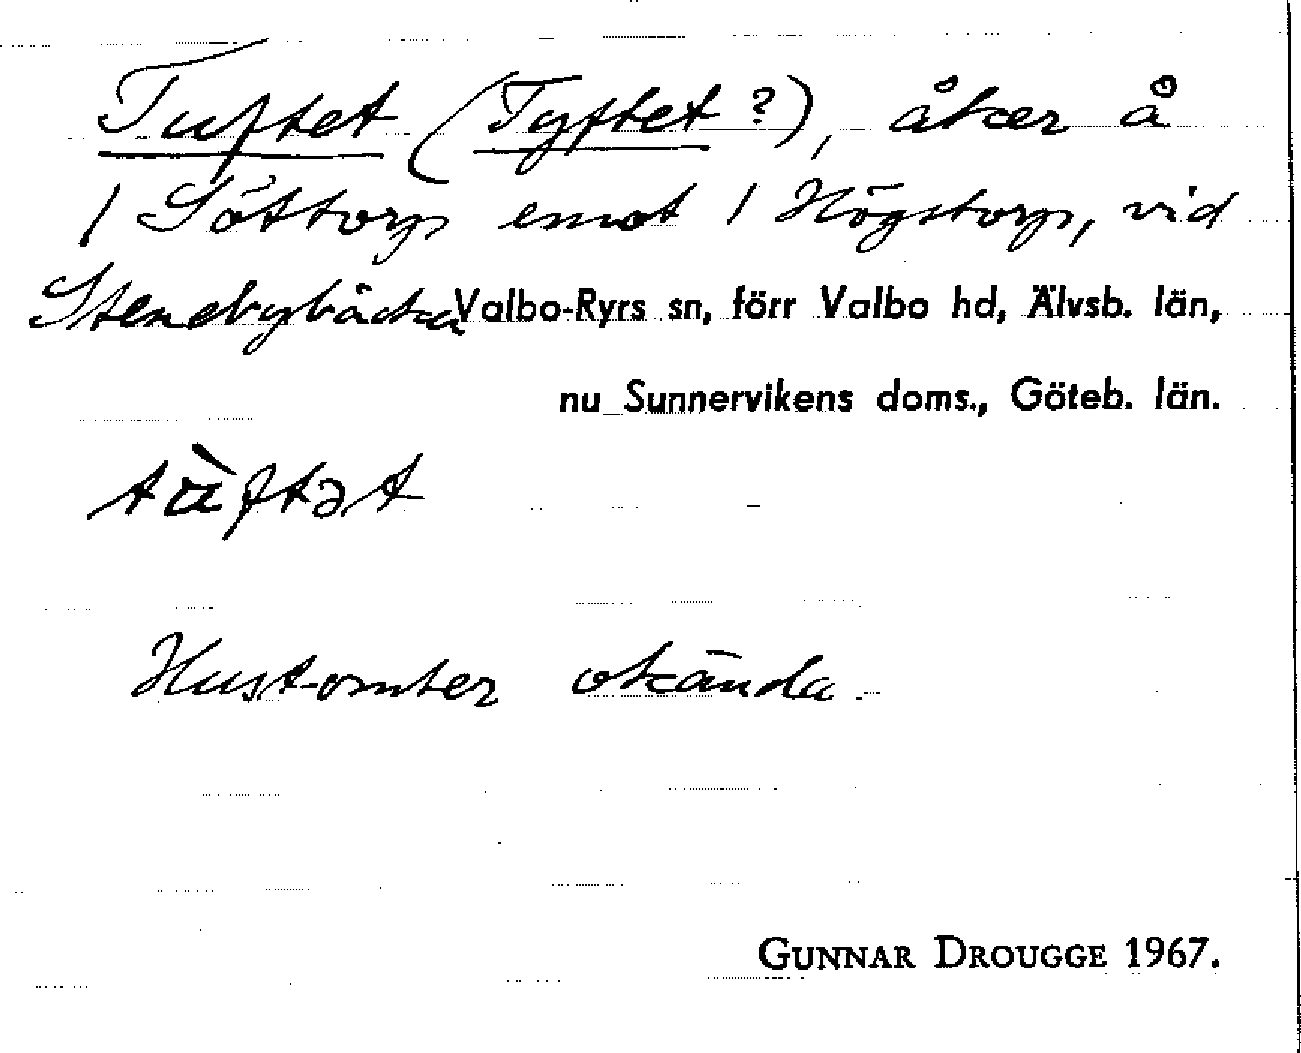 Tuftet (Tyftet?), åker å
/ Söttorp emot / Högstorp, vid
Stenebybäcka Valbo-Ryrs sn, förr Valbo hd, Älvsb. län,
nu Sunnervikens doms., Göteb. län.
Hustomter okända.
GUNNAR DROUGGE 1967.